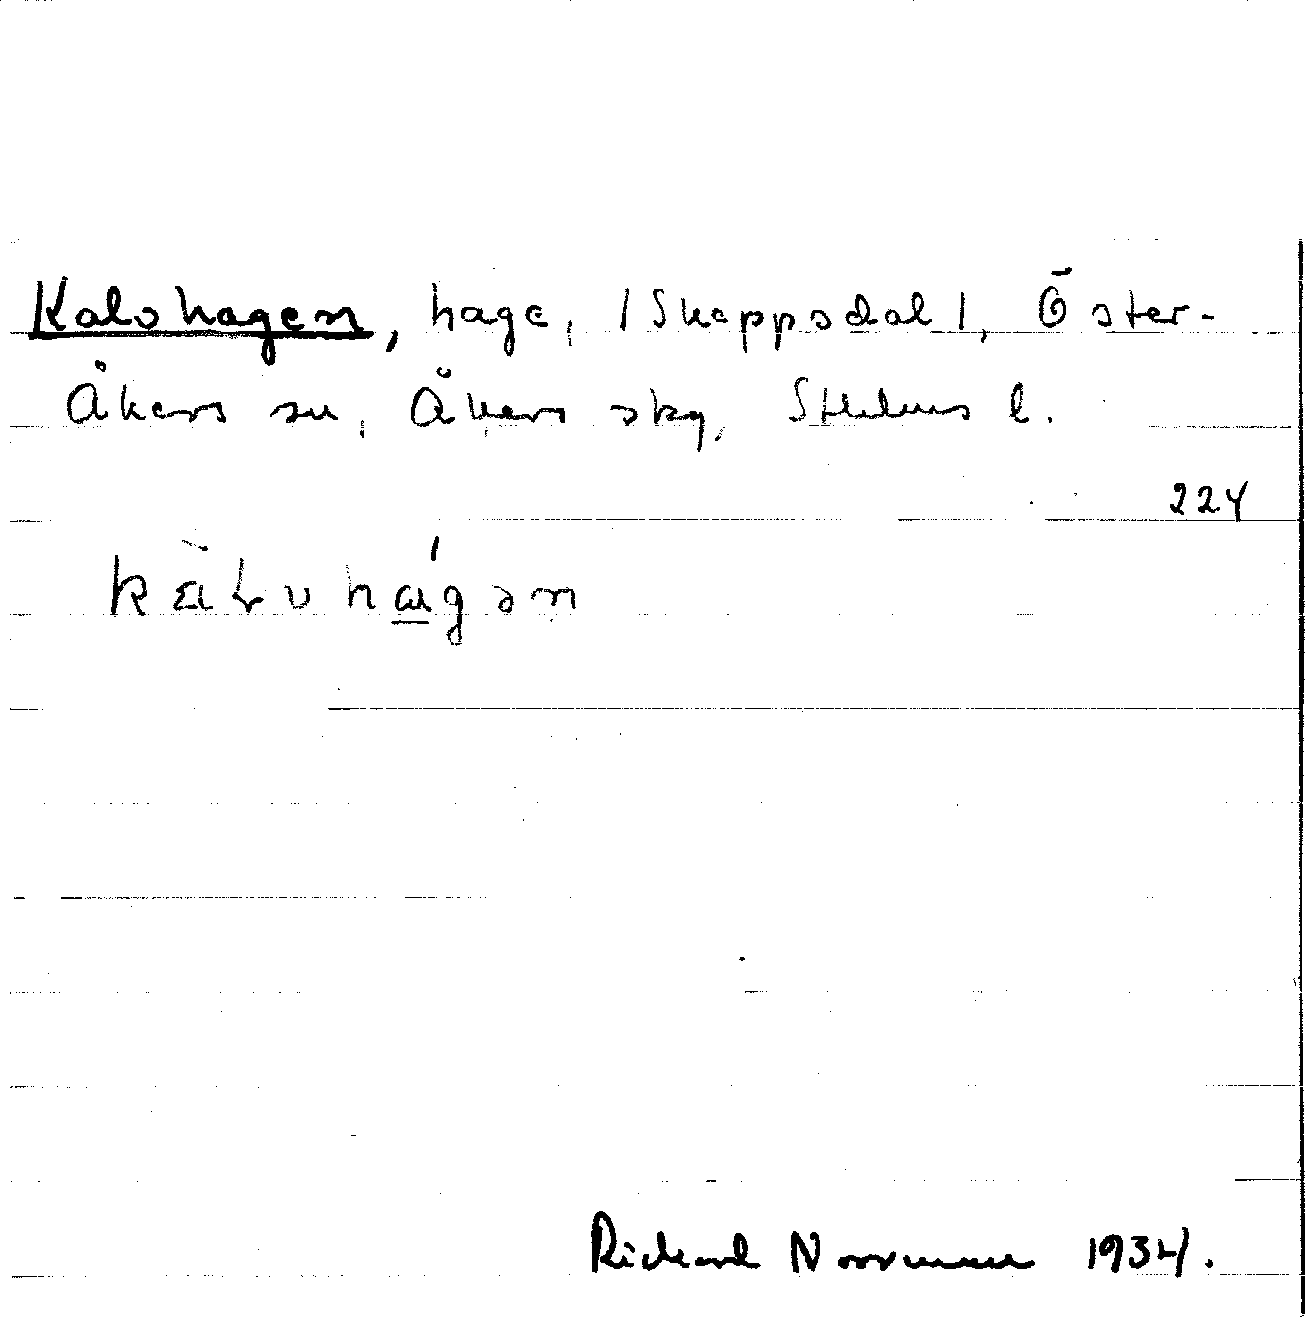 Kalvhagen, hage, /Skeppsdal/, Öster-
Åkers sn, Åkers skg, Sthlms l.
224
kàɫvhágən
Rickard Norrman 1934.